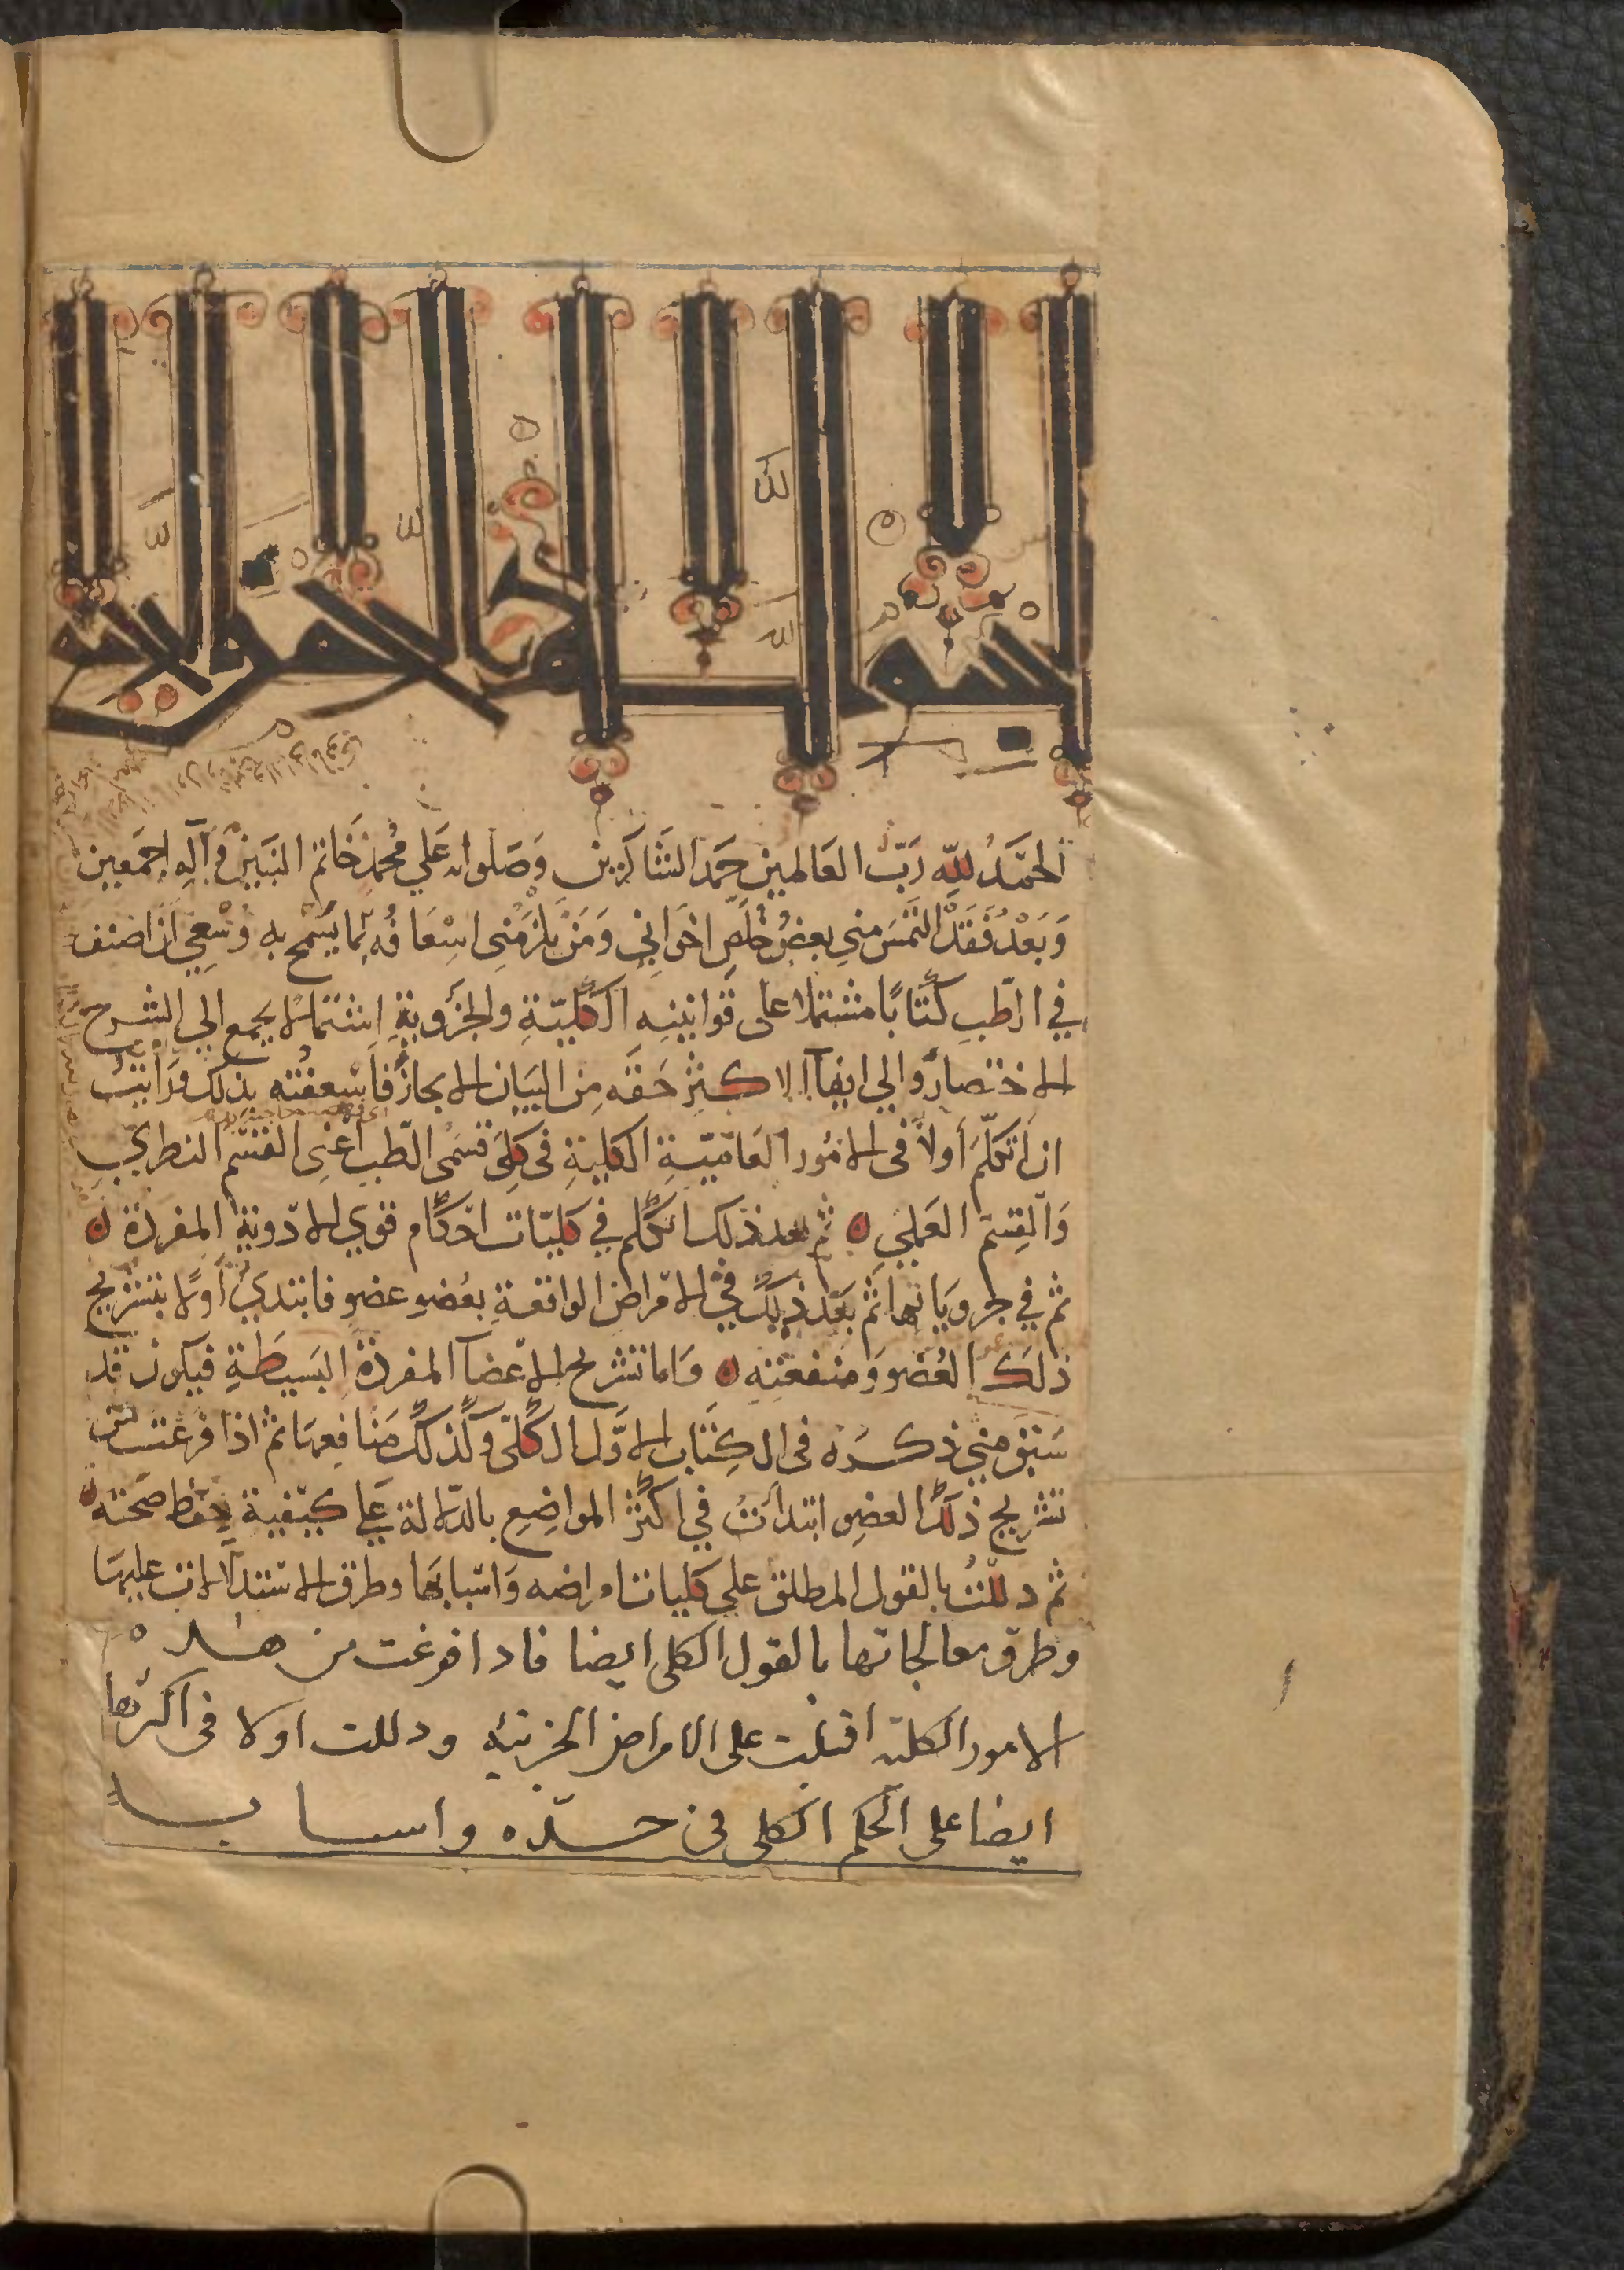 بسم الله الرحمن الرحيم
الحَمدُ للهِ رَبّ العَالمين حَمد الشَاكرين وَصَلواته عَلي مُحمد خَاتم النبيين وَآلِهِ اجمَعين
وَبَعْدُ فَقَدْ التَمسَ مني بعضُ خُلّص اخوَاني وَمَنْ يلزَمُني اسْعَافُهُ بما يَسمَح به وُسْعِي اَن اصنف
في الطّبِ كتَابًا مشتملا على قوانينِه الكُليّةِ والجزويةِ اشتمالا يجمع الي الشرح
الاختصار وَالي ايفآ الاكثر حَقه مِن البيَان الايجاز فاسْعفتُه بذلك وَرَايتُ
ان اَتكلّمَ أولاً في الامُور العَاميّةِ الكليةِ في كِلَي قسمَى الطّب اعنى القسم النظري
وَالقِسمَ العَملي ثم بعد ذلك اتكلم في كليّات احكام قوي الادوية المفردة
ثم في جزوياتها ثم بَعدَ ذلك في الامراض الواقعةِ بعُضوٍ عضو فابتدي أولا بتشريح
ذلكَ العُضو وَمنفعته وَاما تشريح الاعضآ المفردة البَسيطَةِ فيكون قد
سَبق مني ذكرُه في الكِتَاب الاوَّل الكلّى وَكذلك مَنافِعهَا ثم اذا فرغت من
تشريح ذلكَ العضو ابتدأتُ في اكثر المواضِعِ بالدّلالة عَلي كيفية حِفظ صحته
ثم دللتُ بالقول المطلق علي كليات امراضه وَاسبابهَا وطرق الاستدلالات عليهَا
وطرق معالجاتها بالقول الكلى ايضا فاذا فرغت من هذه
الامور الكلية اقبلت على الامراض الجزئية ودللت اولا في اكثرها
ايضا على الحكم الكلى في حدّه واسبابه